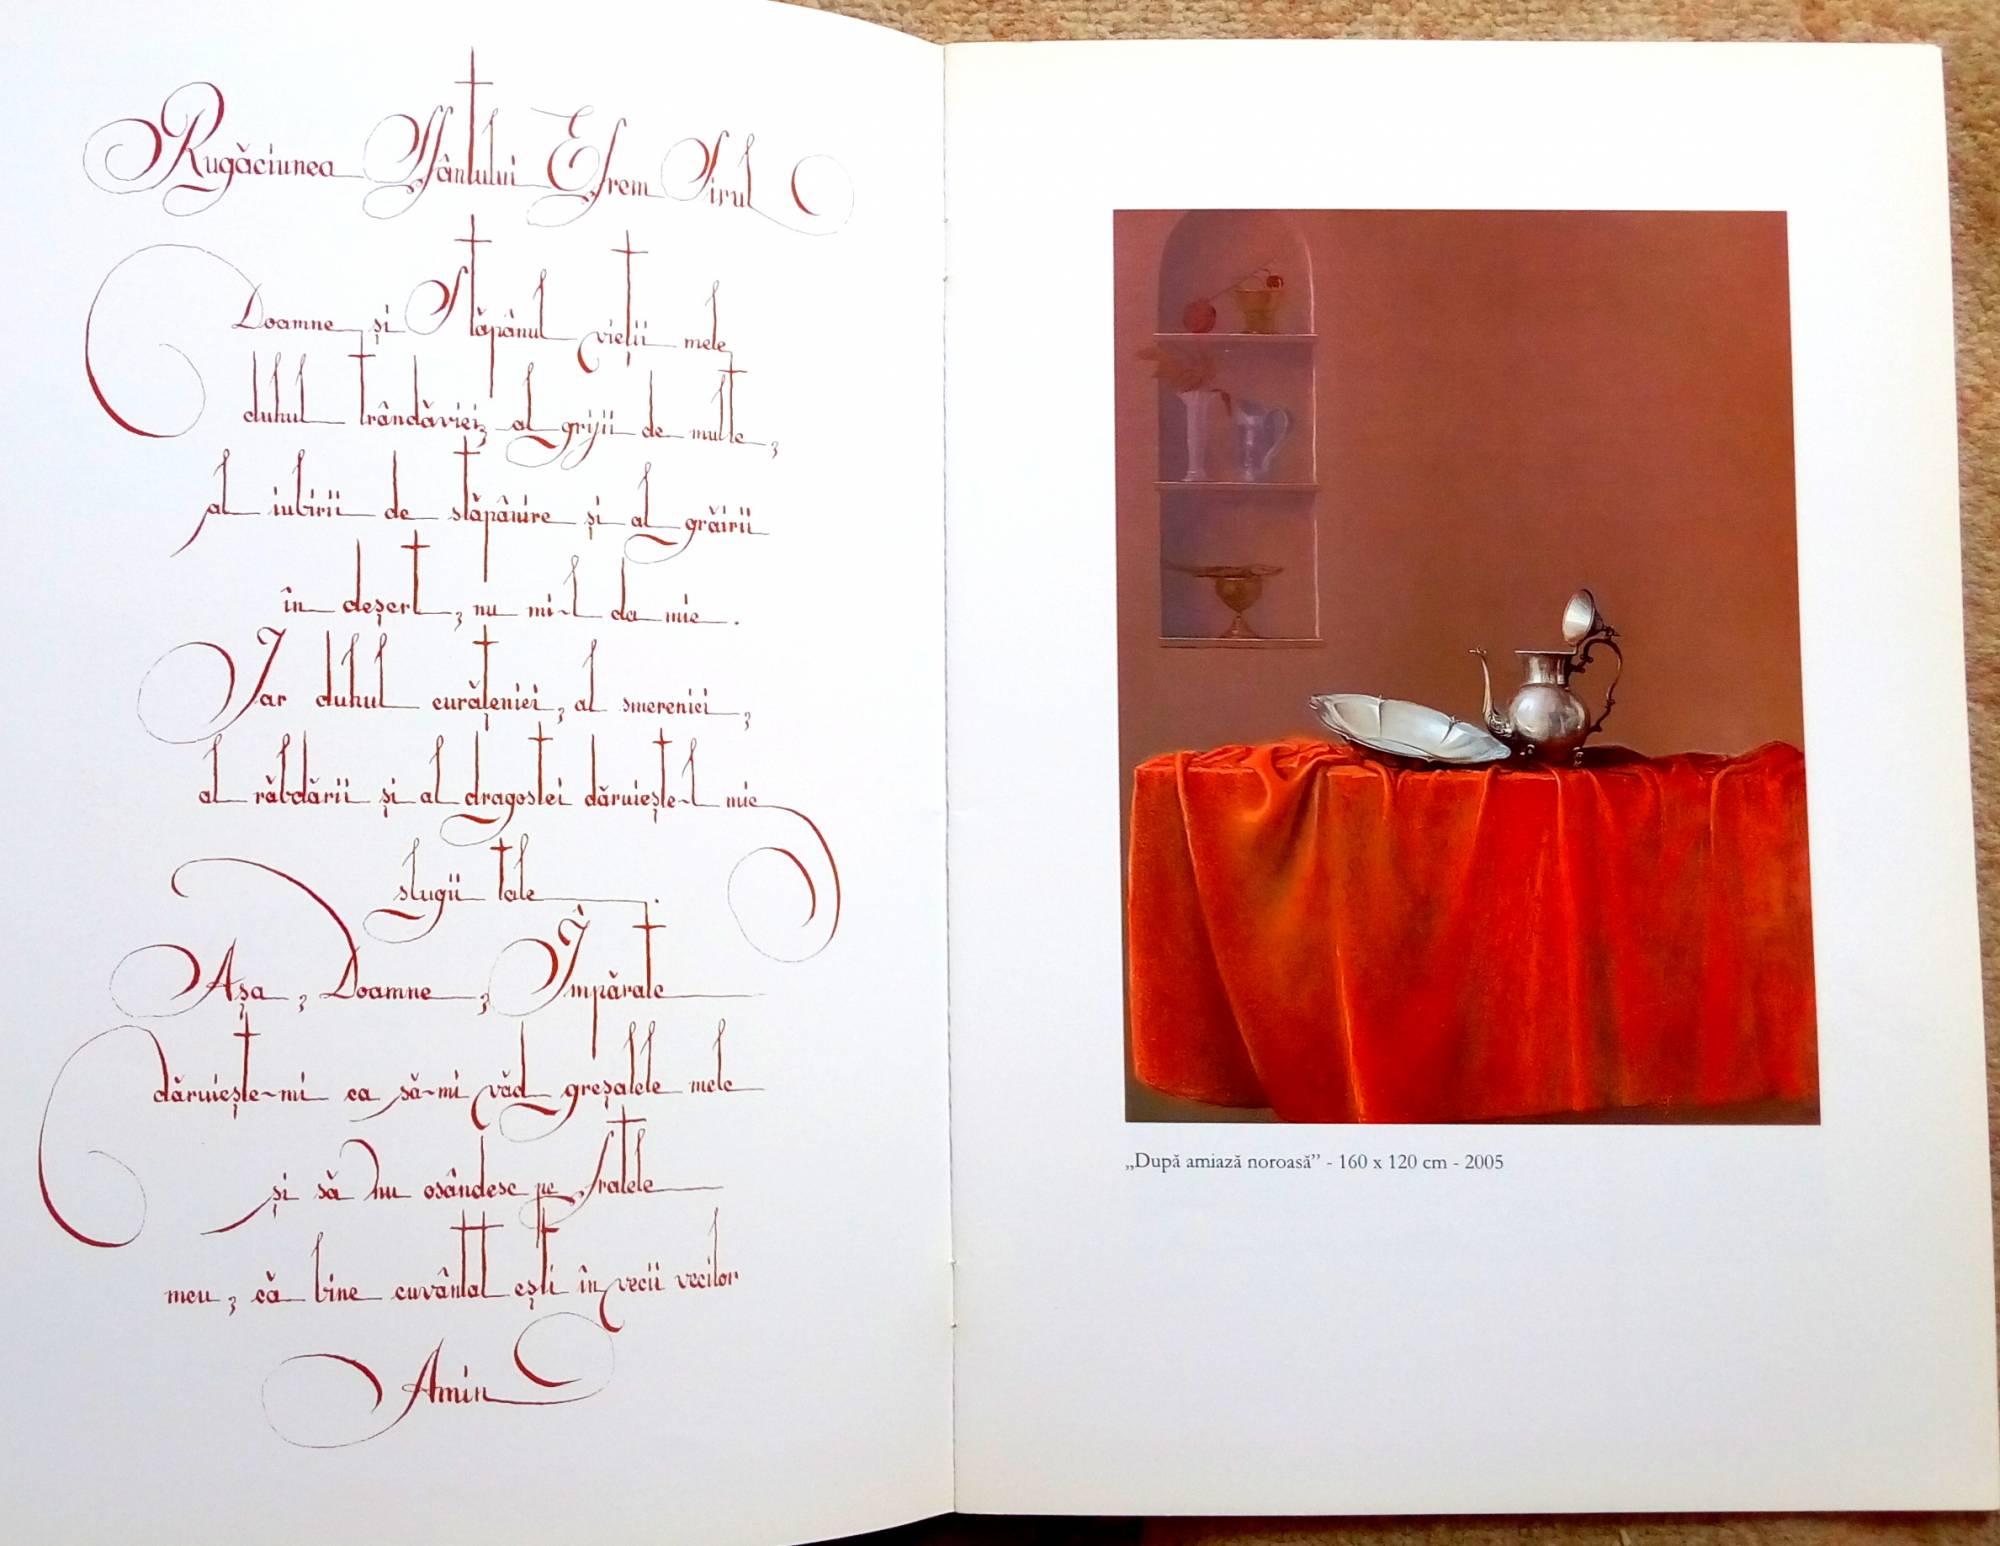 Rugăciunea Sfântului Efrem Sirul
Doamne și Stăpânul vieții mele
duhul trândăviei, al grijii de multe,
al iubirii de stăpânire și al grăirii
în deșert, nu mi-l da mie.
Iar duhul curățeniei, al smereniei,
al răbdării și al dragostei dăruiește-l mie
slugii tale.
Așa, Doamne, Împărate
dăruiește-mi ca să-mi văd greșalele mele
și să nu osândesc pe fratele
meu, că bine cuvântat ești în vecii vecilor
Amin
„După amiază noroasă” - 160 x 120 cm - 2005